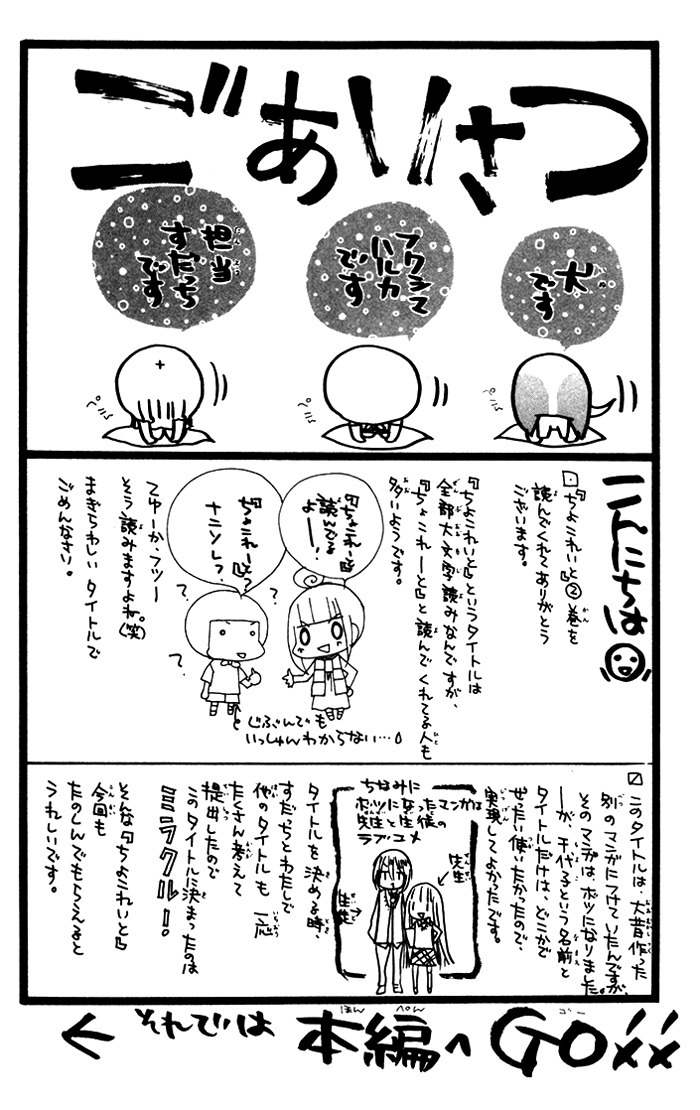 ごあいさつ
犬
です
フクシマ
ハルカ
です
担当
すだっち
です
ペコ
ペコ
ペコ
こんにちは
『ちょこれいと』②巻を
読んでくれてありがとう
ございます。
『ちょこれいと』というタイトルは
全部大文字読みなんですが、
『ちょこれーと』と読んでくれてる人も
多いようです。
『ちょこれーと』
読んでる
よー!
『ちょこれーと』?
ナニソレ?
?
?
?
じぶんでも
いっしゅんわからない…
てゆーか、フツー
そう読みますよね。(笑)
まぎらわしいタイトルで
ごめんなさい。
このタイトルは、大昔作った
別のマンガにつけていたんですが、
そのマンガは、ボツになりました。
―が、千代子という名前と
タイトルだけは、どこかで
ぜったい使いたかったので、
実現してよかったです。
ちなみに
ボツになったマンガは
先生と生徒の
ラブコメ
先生
生徒
タイトルを決める時、
すだちとわたしで
他のタイトルも一応
たくさん考えて
提出したので
このタイトルに決まったのは
ミラクルー!
そんな『ちょこれいと』
今回も
たのしんでもらえると
うれしいです。
それでは 本編へ GO××
←